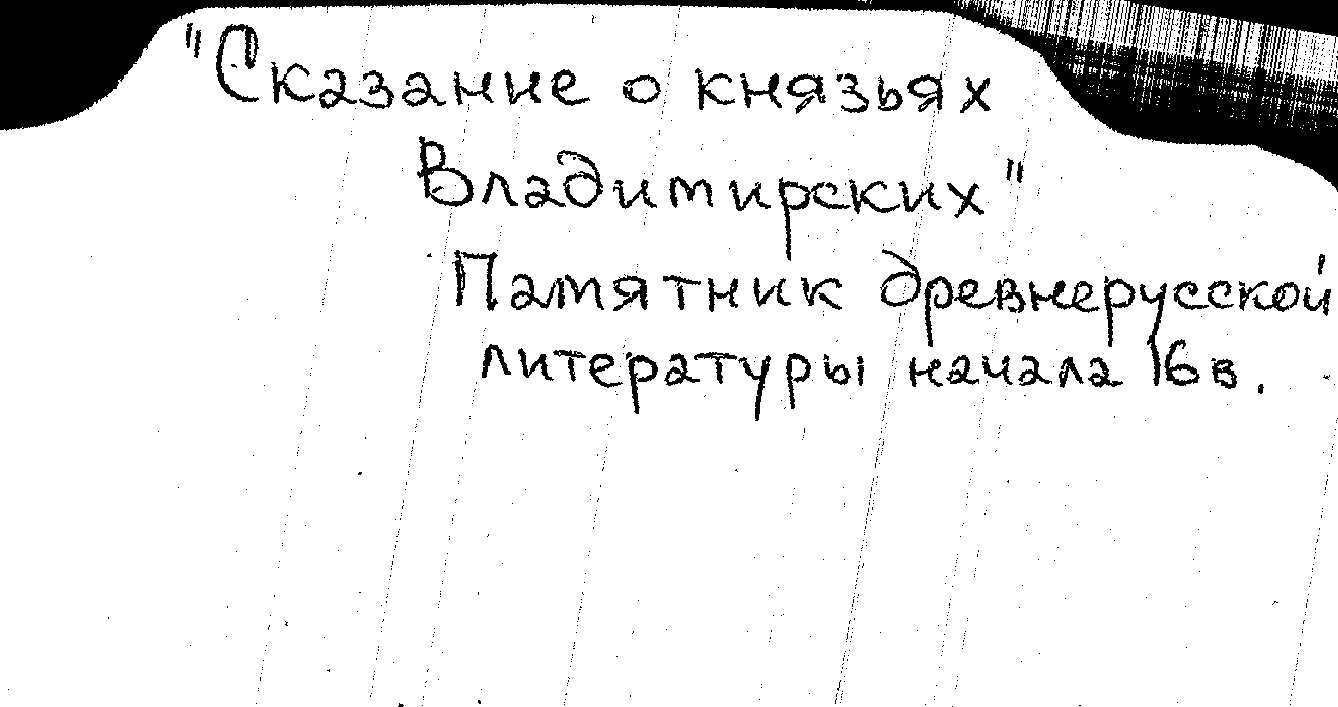 "Сказание о князьях
Владимирских"
Памятник древнерусской
литературы начала 16 в.